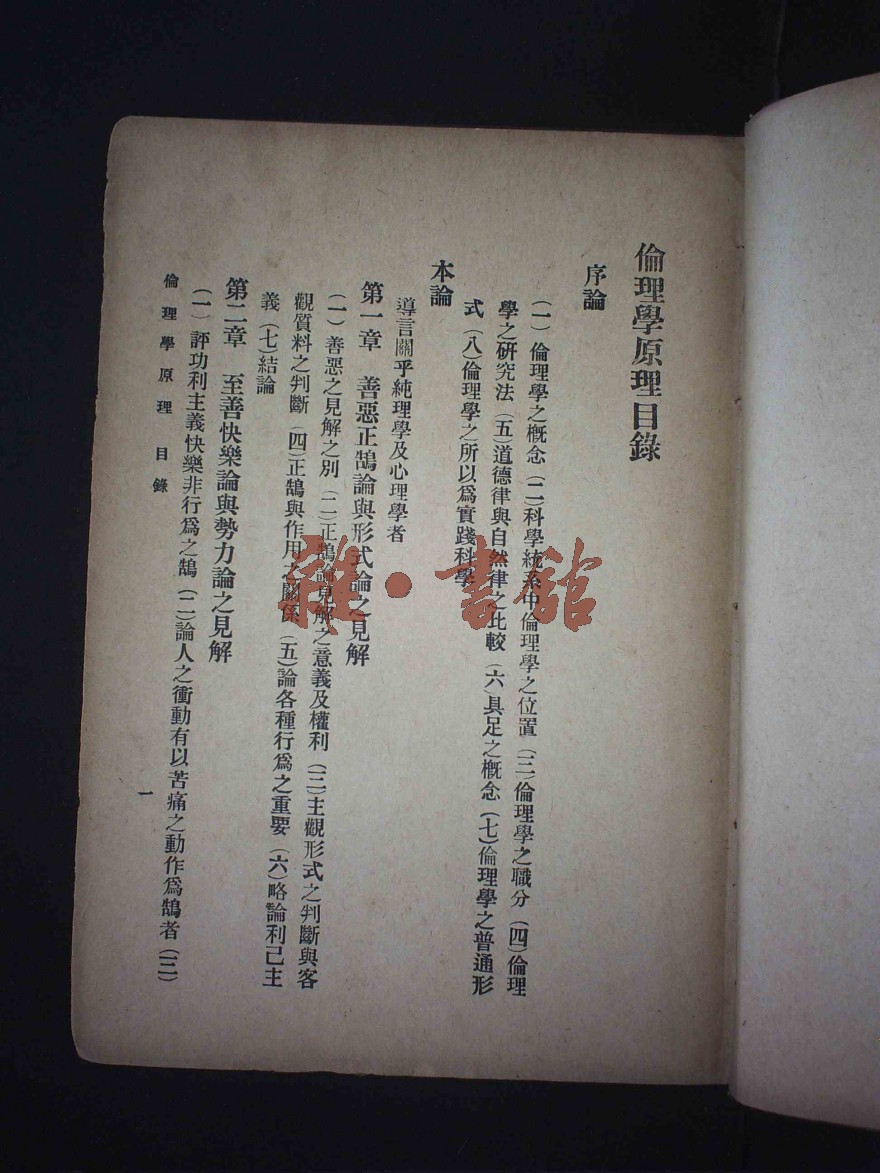 倫理學原理目錄
序論
(一)倫理學之概念(二)科學統系中倫理學之位置(三)倫理學之職分(四)倫理
學之研究法(五)道德律與自然律之比較(六)具足之概念(七)倫理學之普通形
式(八)倫理學之所以爲實踐科學
本論
導言關乎純理學及心理學者
第一章 善惡正鵠論與形式論之見解
(一)善惡之見解之別(二)正鵠論見解之意義及權利(三)主觀形式之判斷與客
觀質料之判斷(四)正鵠與作用之關係(五)論各種行爲之重要(六)略論利己主
義(七)結論
第二章 至善快樂論與勢力論之見解
(一)評功利主義快樂非行爲之鵠(二)論人之衝動有以苦痛之動作爲鵠者(三)
倫理學原理 目錄
一
雜·書館